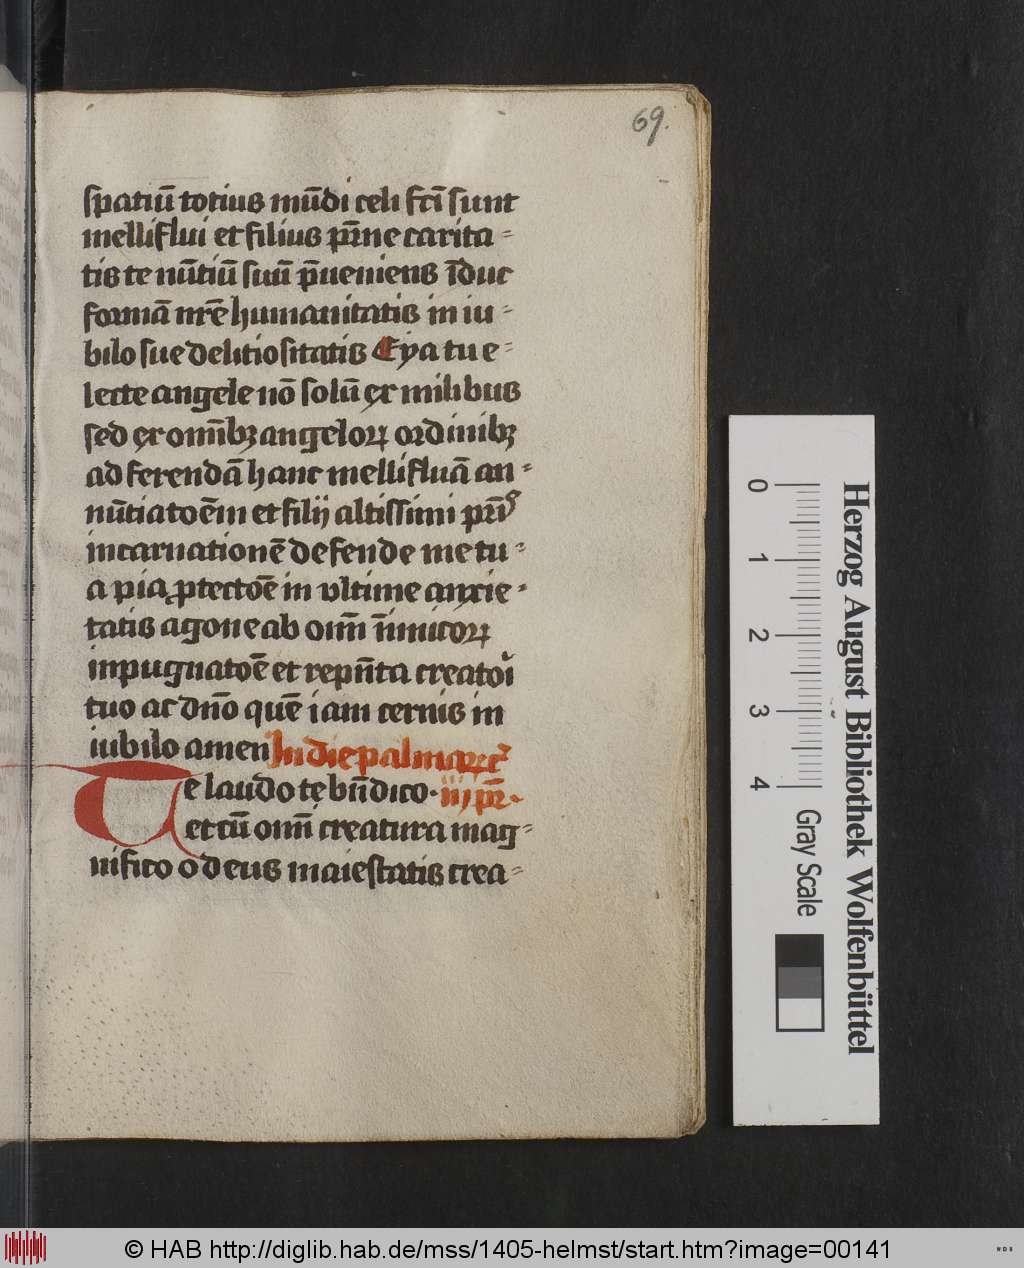 69.
spatiū totius mūdi celi fcī sunt
melliflui et filius pr̄ne carita⸗
tis te nūtiū suū p̄ueniens īduc
formā nr̄e humanitatis in iu⸗
bilo sue delitiositatis Eya tu e⸗
lecte angele nō solū ex milibus
sed ex omībꝫ angeloꝝ ordinibꝫ
ad ferendā hanc mellifluā an⸗
nūtiatoēm et filij altissimi pr̄is
incarnationē defende me tu⸗
a pia ꝓtectoē in vltime anxie⸗
tatis agone ab omī īimicoꝝ
inpugnatoē et repn̄ta creatori
tuo ac dn̄o quē iam cernis in
iubilo amen In die palmaꝝ
Te laudo te bn̄dico· iij pr̄·
et cū omī creatura mag⸗
nifico o deus maiestatis crea⸗
0 1 2 3 4
Gray Scale
Herzog August Bibliothek Wolfenbüttel
© HAB http://diglib.hab.de/mss/1405-helmst/start.htm?image=00141